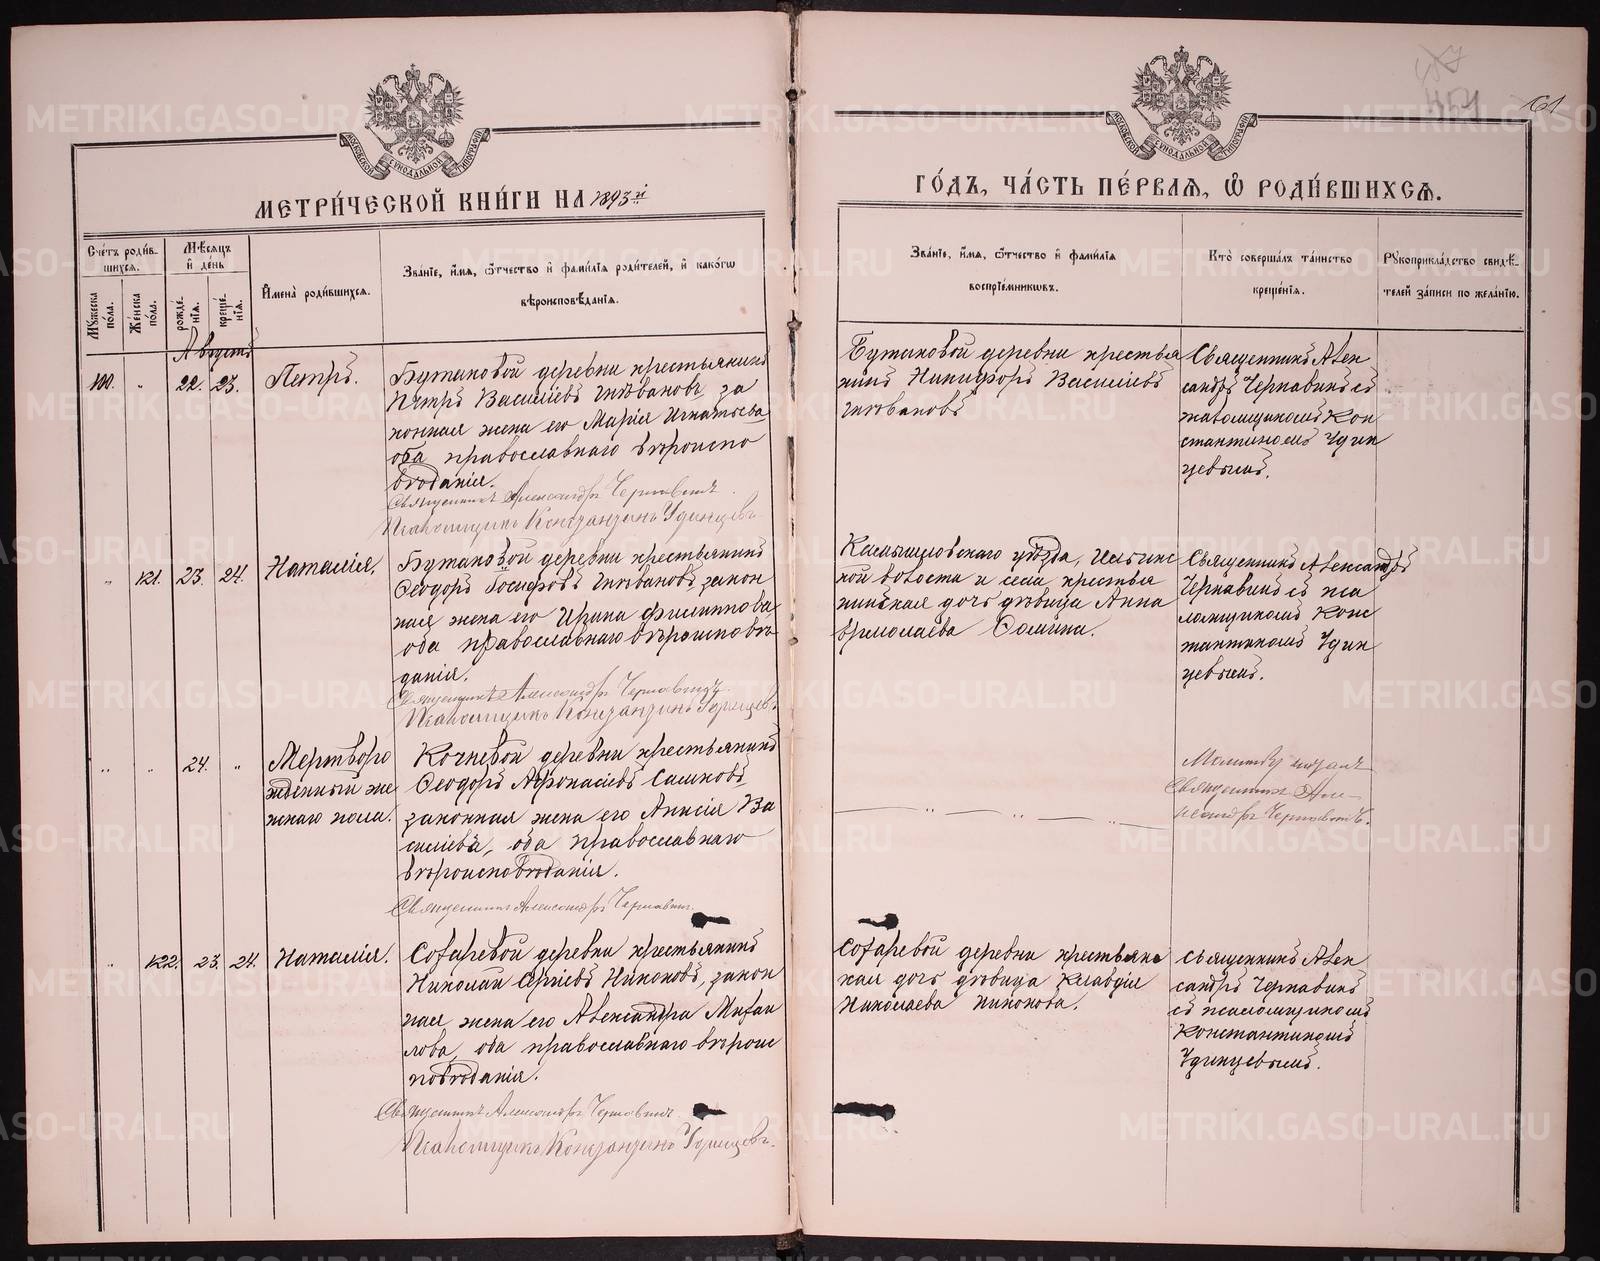 161
МЕТРИ́ЧЕСКОЙ КНИ́ГИ НА 1893й
ГО́ДЪ, ЧА́СТЬ ПЕ́РВАЯ, Ѿ РОДИ́ВШИХСЯ.
МОСКОВСКОЙ СѴНОДАЛЬНОЙ ТИПОГРАФІИ
МОСКОВСКОЙ СѴНОДАЛЬНОЙ ТИПОГРАФІИ
Сче́тъ роди́вшихся.
Мꙋ́жеска по́ла.
Же́нска по́ла.
Мѣ́сяцъ и де́нь
рожде́нія.
креще́нія.
И҆мена̀ роди́вшихся.
Зва́ніе, и҆́мя, ѻ҆́тчество и҆ фами́лія роди́телей, и҆ како́гѡ
вѣроисповѣ́данія.
Зва́ніе, и҆́мя, ѻ҆́тчество и҆ фами́лія
воспріе́мникѡвъ.
Кто̀ соверша́лъ та́инство
креще́нія.
Рꙋкоприкла́дство свидѣ́-
телей за́писи по жела́нію.
Августъ
100. „ 22. 23. Петръ.
Бутаковой деревни крестьянинъ
Петръ Васильевъ Гневановъ, за
конная жена его Марія Игнатьева
оба православнаго вѣроиспо
вѣданія.
Священникъ Александръ Чернавинъ.
Псаломщикъ Константинъ Удинцевъ.
Бутаковой деревни крестья
нинъ Никифоръ Васильевъ
Гневановъ
Священникъ Алек
сандръ Чернавинъ съ
псаломщикомъ Кон
стантиномъ Удин
цевымъ.
„ 121. 23. 24. Наталія.
Бутаковой деревни крестьянинъ
Ѳеодоръ Іосифовъ Гневановъ, закон
ная жена его Ирина Филиппова
оба православнаго вѣроисповѣ
данія.
Священникъ Александръ Чернавинъ.
Псаломщикъ Константинъ Удинцевъ
Камышловскаго уѣзда, Ильинс
кой волости и села, крестья
нинская дочь дѣвица Анна
Ермолаева Сомина.
Священникъ Александръ
Чернавинъ съ пса
ломщикомъ Конс
тантиномъ Удин
цевымъ.
„ „ 24. „ Мертворо
жденный же
нскаго пола.
Кочневой деревни крестьянинъ
Ѳеодоръ Афонасьевъ Сашковъ
законная жена его Анисія Ва
сильева, оба православнаго
вѣроисповѣданія.
Священникъ Александръ Чернавинъ.
Молитву читалъ
Священникъ Але-
ксандръ Чернавинъ.
„ 122. 23. 24. Наталія.
Сохаревой деревни крестьянинъ
Николай Сергіевъ Никоновъ, закон
ная жена его Александра Михаи
лова, оба православнаго вѣроис
повѣданія.
Священникъ Александръ Чернавинъ.
Псаломщикъ Константинъ Удинцевъ.
Сохаревой деревни крестьянс
кая дочь дѣвица Клавдія
Николаева Никонова.
Священникъ Алек
сандръ Чернавинъ
съ псаломщикомъ
Константиномъ
Удинцевымъ.
METRIKI.GASO-URAL.RU